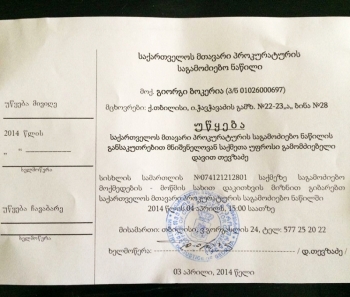 საქართველოს მთავარი პროკურატურის
საგამოძიებო ნაწილი
მოქ. გიორგი ბოკერია (პ/ნ 01026000697)
მცხოვრები: ქ.თბილისი, ი.ჭავჭავაძის გამზ. №22-23,ა, ბინა №28
უწყება
საქართველოს მთავარი პროკურატურის საგამოძიებო ნაწილის
განსაკუთრებით მნიშვნელოვან საქმეთა უფროსი გამომძიებელი
დავით თევზაძე
სისხლის სამართლის №074121212801 საქმეზე საგამოძიებო
მოქმედების - მოწმის სახით დაკითხვის მიზნით გიბარებთ
საქართველოს მთავარი პროკურატურის საგამოძიებო ნაწილში
2014 წლის 04 აპრილს, 15:00 საათზე
მისამართი: თბილისი, გორგასლის 24, ტელ: 577 25 20 22
ხელმოწერა: / დ.თევზაძე /
03 აპრილი, 2014 წელი
უწყება მივიღე
2014 წლის
„ “
ხელმოწერა
უწყება ჩავაბარე
ხელმოწერა